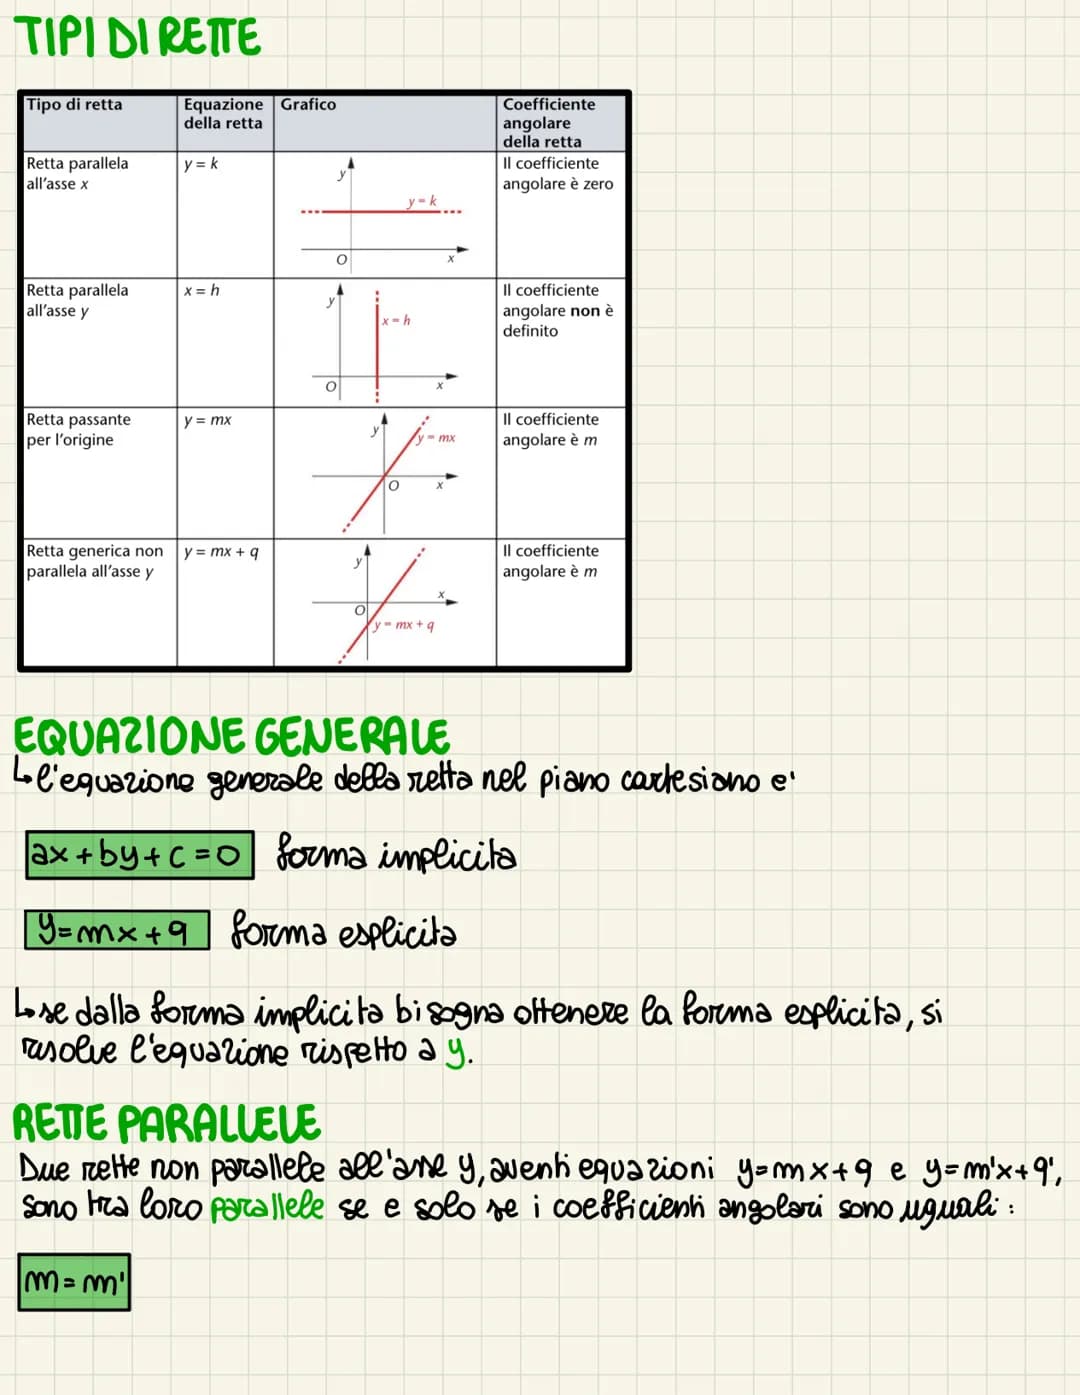 TIPI DI RETTE
Tipo di retta
Equazione
della retta
Grafico
Coefficiente
angolare
della retta
Retta parallela
all'asse x
y = k
y
y = k
O
x
Il coefficiente
angolare è zero
Retta parallela
all'asse y
x = h
y
x = h
O
x
Il coefficiente
angolare non è
definito
Retta passante
per l'origine
y = mx
y
y = mx
O
x
Il coefficiente
angolare è m
Retta generica non
parallela all'asse y
y = mx + q
y
x
O
y = mx + q
Il coefficiente
angolare è m
EQUAZIONE GENERALE
↳l'equazione generale della retta nel piano cartesiano e'
ax+by+c=0 forma implicita
y=mx+q forma esplicita
↳se dalla forma implicita bisogna ottenere la forma esplicita, si
risolve l'equazione rispetto a y.
RETTE PARALLELE
Due rette non parallele all'asse y, aventi equazioni y=mx+q e y=m'x+q',
sono tra loro parallele se e solo se i coefficienti angolari sono uguali:
m=m'